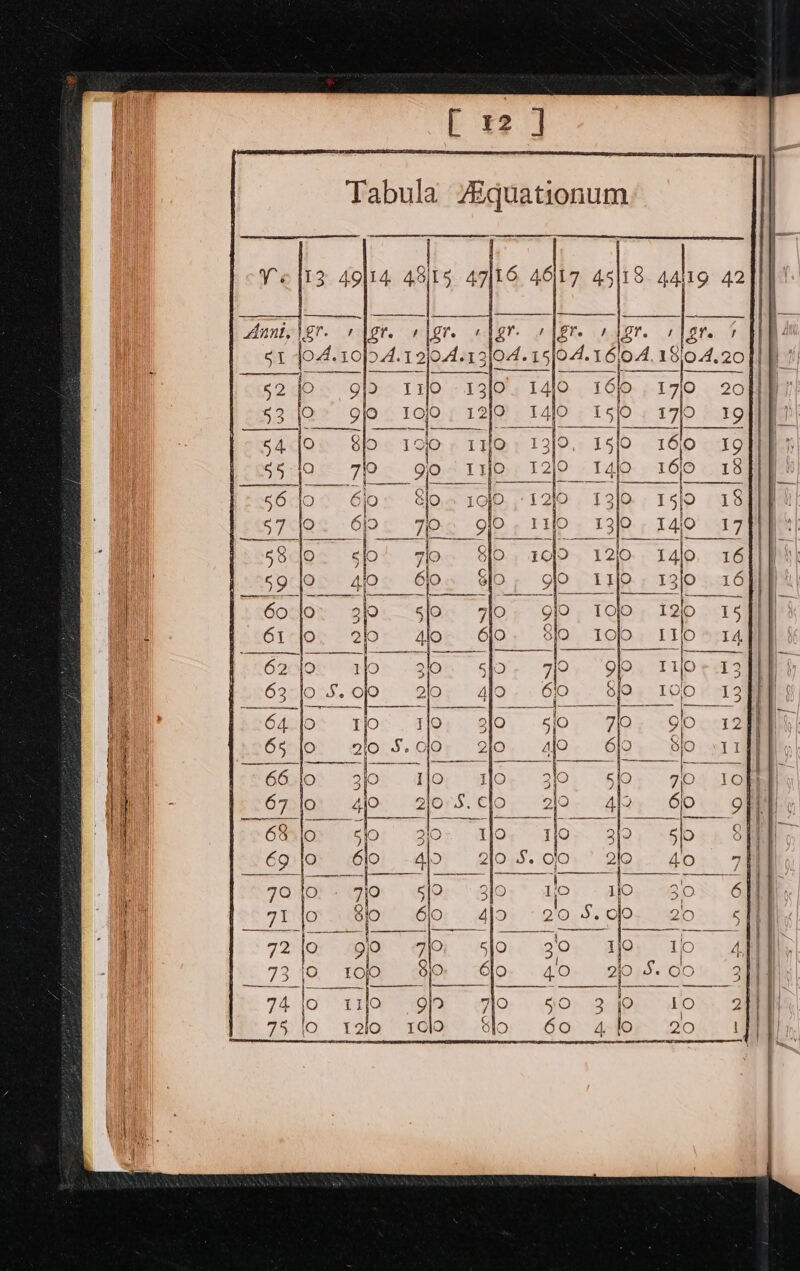 [ 12 ]
Tabula Æquationum
♈ 13 49|14 48|15 47|16 46|17 45|18 44|19 42
Anni, gr. ′|gr. ′|gr. ′|gr. ′|gr. ′|gr. ′|gr. ′
51 0A.10|0A.12|0A.13|0A.15|0A.16|0A.18|0A.20
52 0 9|0 11|0 13|0 14|0 16|0 17|0 20
53 0 9|0 10|0 12|0 14|0 15|0 17|0 19
54 0 8|0 10|0 11|0 13|0 15|0 16|0 19
55 0 7|0 9|0 11|0 12|0 14|0 16|0 18
56 0 6|0 8|0 10|0 12|0 13|0 15|0 18
57 0 6|0 7|0 9|0 11|0 13|0 14|0 17
58 0 5|0 7|0 8|0 10|0 12|0 14|0 16
59 0 4|0 6|0 8|0 9|0 11|0 13|0 16
60 0 3|0 5|0 7|0 9|0 10|0 12|0 15
61 0 2|0 4|0 6|0 8|0 10|0 11|0 14
62 0 1|0 3|0 5|0 7|0 9|0 11|0 13
63 0 S. 0|0 2|0 4|0 6|0 8|0 10|0 13
64 0 1|0 1|0 3|0 5|0 7|0 9|0 12
65 0 2|0 S. 0|0 2|0 4|0 6|0 8|0 11
66 0 3|0 1|0 1|0 3|0 5|0 7|0 10
67 0 4|0 2|0 S. 0|0 2|0 4|0 6|0 9
68 0 5|0 3|0 1|0 1|0 3|0 5|0 8
69 0 6|0 4|0 2|0 S. 0|0 2|0 4|0 7
70 0 7|0 5|0 3|0 1|0 1|0 3|0 6
71 0 8|0 6|0 4|0 2|0 S. 0|0 2|0 5
72 0 9|0 7|0 5|0 3|0 1|0 1|0 4
73 0 10|0 8|0 6|0 4|0 2|0 S. 0|0 3
74 0 11|0 9|0 7|0 5|0 3|0 1|0 2
75 0 12|0 10|0 8|0 6|0 4|0 2|0 1